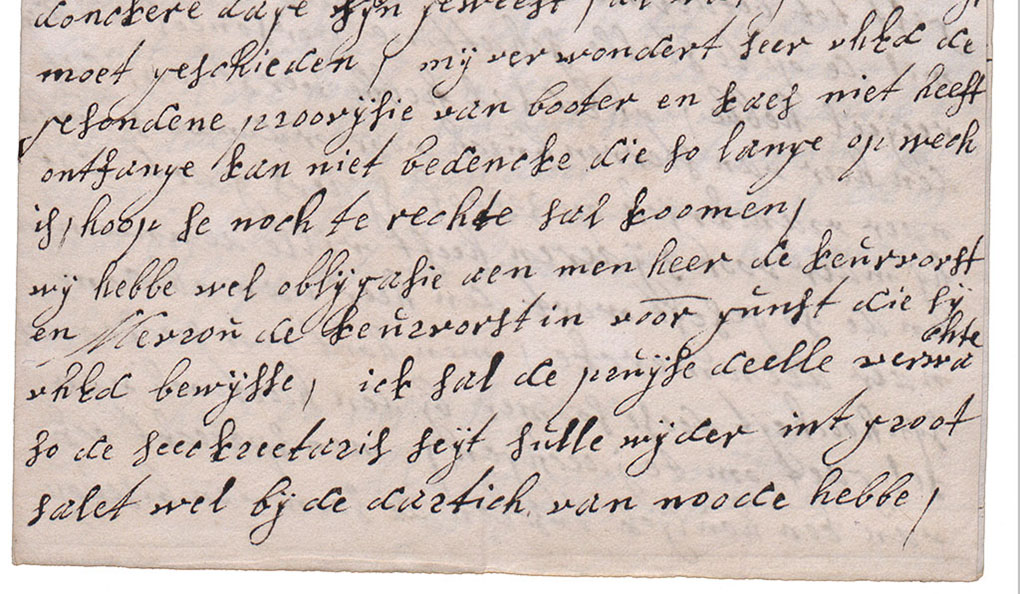 donckere dage sijn geweest
moet geschieden / mij verwondert seer vhEd de
gesondene provijsie van booter en kaes niet heeft
ontfange kan niet bedencke die so lange op wech
is, hoop se noch te rechte sal koomen,
wij hebbe wel obligasie aen men heer de keurvorst
en Mevrou de keurvorstin voor gunst die sij
vhEd bewijsse, ick sal de pruijse deelle verwa
chte
so de seeckreetaris seijt sulle wijder int groot
salet wel bij de dartich van noode hebbe,